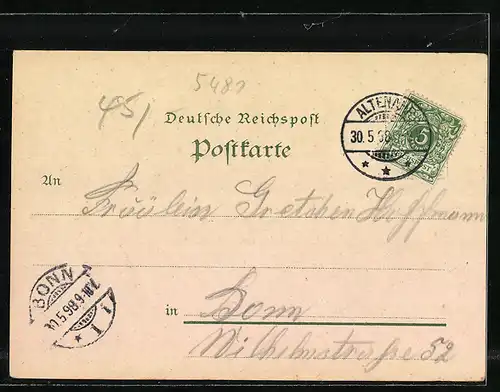 5481
451
Deutsche Reichspost
Postkarte
ALTENA
30.5.98
5
An
Fräulein Gretchen Hoffmann
BONN
30.5.98 9-10V.
in Bonn
Wilhelmstrasse 52